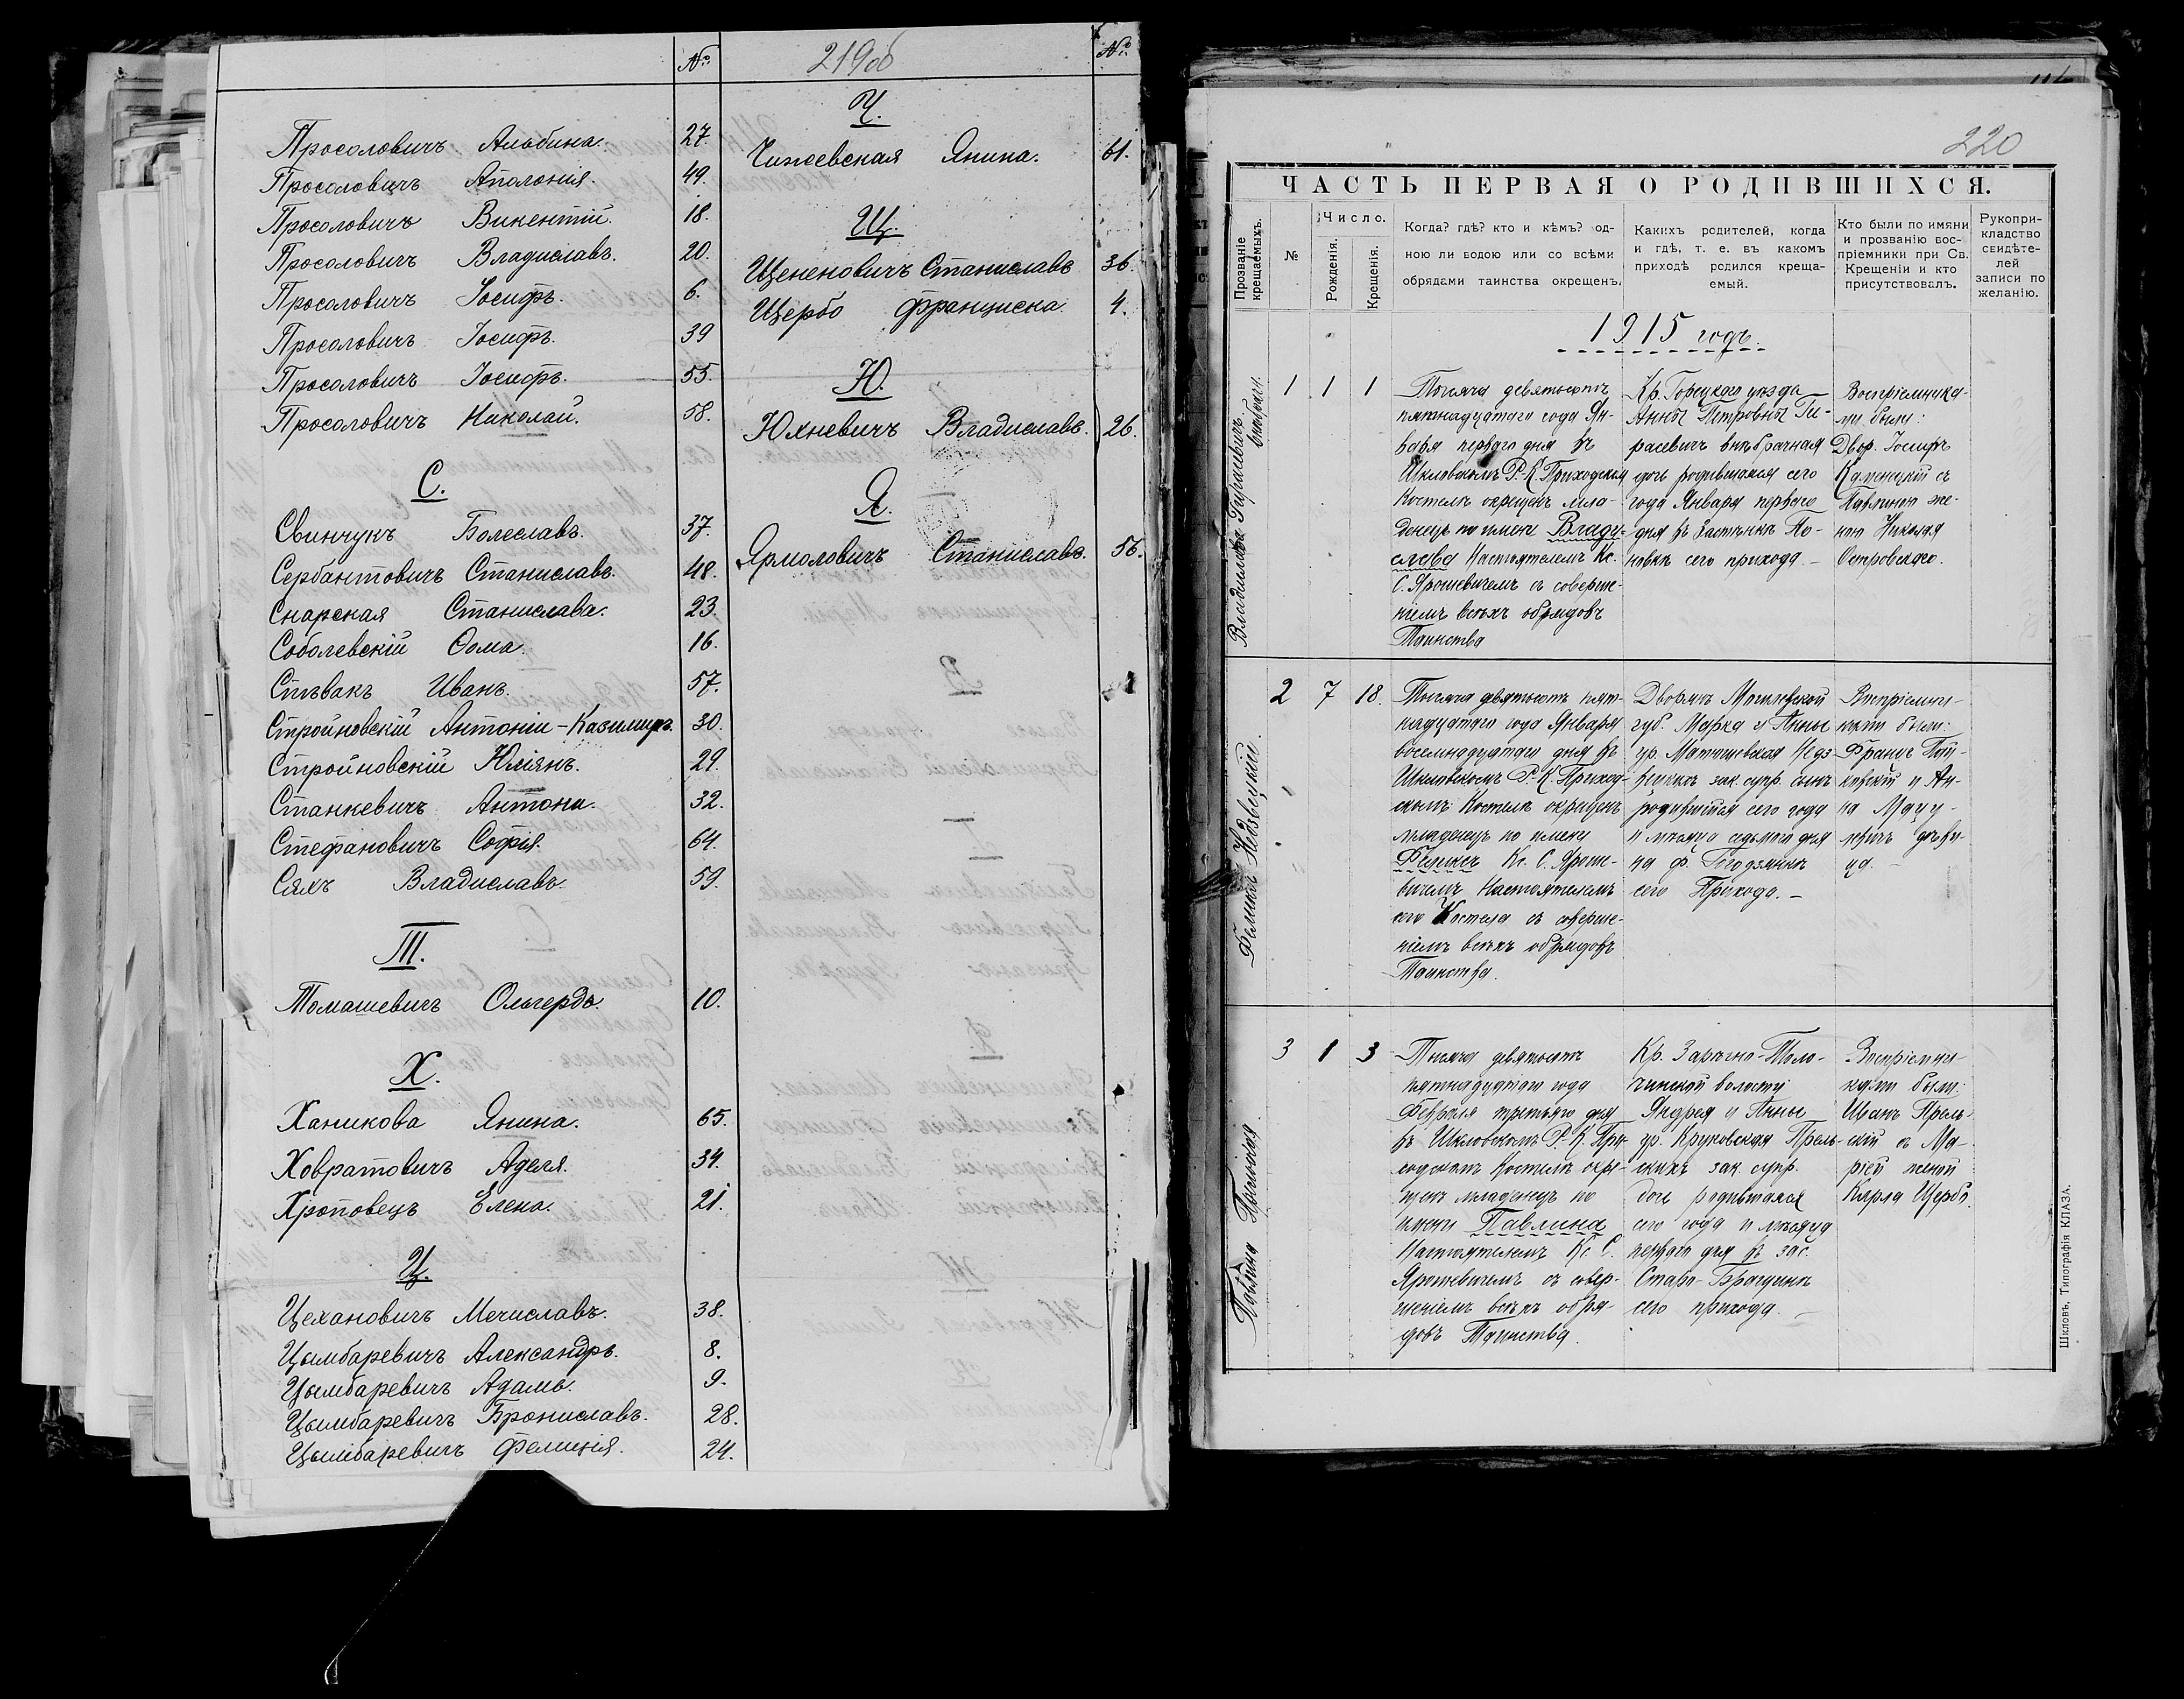 № 219об №
Просоловичъ Альбина. 27.
Просоловичъ Аполонія. 49.
Просоловичъ Викентій. 18.
Просоловичъ Владиславъ. 20.
Просоловичъ Іосифъ. 6.
Просоловичъ Іосифъ. 39
Просоловичъ Іосифъ. 55.
Просоловичъ Николай. 58.
С.
Свинчукъ Болеславъ. 37.
Сербантовичъ Станиславъ. 48.
Снарская Станислава. 23.
Соболевскій Ѳома. 16.
Стѣвакъ Иванъ. 57.
Стройновскій Антоній-Казимиръ. 30.
Стройновскій Юліянъ. 29.
Станкевичъ Антони. 32.
Стефановичъ Софія. 64.
Сяхъ Владиславъ. 59.
Т.
Томашевичъ Ольгердъ. 10.
Х.
Ханикова Янина. 65.
Ховратовичъ Аделя. 34.
Хроповецъ Елена. 21.
Ц.
Цехановичъ Мечиславъ. 38.
Цымбаревичъ Александръ. 8.
Цымбаревичъ Адамъ. 9.
Цымбаревичъ Брониславъ. 28.
Цымбаревичъ Фелиція. 24.
Ч.
Чижевская Янина. 61.
Щ.
Щененовичъ Станиславъ 36.
Щербо Франциска. 4.
Ю.
Юхневичъ Владиславъ. 26.
Я.
Ярмоловичъ Станиславъ. 56.
220
ЧАСТЬ ПЕРВАЯ О РОДИВШИХСЯ.
Прозваніе крещаемыхъ.
№
Число.
Рожденія.
Крещенія.
Когда? гдѣ? кто и кѣмъ? од-
ною ли водою или со всѣми
обрядами таинства окрещенъ.
Какихъ родителей, когда
и гдѣ, т. е. въ какомъ
приходѣ родился креща-
емый.
Кто были по имяни
и прозванію вос-
пріемники при Св.
Крещеніи и кто
присутствовалъ.
Рукопри-
кладство
свидѣте-
лей
записи по
желанію.
1915 годъ.
Владислава Гирасевичъ
внѣбрач.
1 1 1
Тысяча девятьсотъ
пятнадцатаго года Ян-
варя перваго дня въ
Шкловскомъ Р.-К. Приходскомъ
Костелѣ окрещенъ мла-
денецъ по имени Влади-
слава Настоятелемъ Кс.
С. Ярошевичемъ съ соверше-
ніемъ всѣхъ обрядовъ
Таинства
Кр. Горецкаго уѣзда
Анны Петровны Ги-
расевичъ внѣбрачная
дочь родившаяся сего
года Января перваго
дня въ Застѣнкѣ По-
новкѣ сего прихода. –
Воспріемника-
ми были:
Двор. Іосифъ
Каменецкій съ
Павлиною же-
ною Николая
Островскаго.
Феликсъ Недзвецкій.
2 7 18.
Тысяча девятьсотъ пят-
надцатаго года Января
восемнадцатаго дня въ
Шкловскомъ Р.-К. Приход-
скомъ Костелѣ окрещенъ
младенецъ по имени
Феликсъ Кс. С. Яроше-
вичемъ Настоятелемъ
сего Костела съ соверше-
ніемъ всѣхъ обрядовъ
Таинства.
Дворянъ Могилевской
губ. Марка и Анны
ур. Матюшевская Недз-
вецкихъ зак. супр. сынъ
родившійся сего года
и мѣсяца седьмого дня
сего Прихода. –
Воспріемни-
ками были:
Францъ Пот-
ковскій и Ан-
на Мацу-
левичъ дѣви-
ца. –
3 1 3
Тысяча девятьсотъ
пятнадцатаго года
Февраля третьяго дня
въ Шкловскомъ Р.-К. При-
ходскомъ Костелѣ окре-
щенъ младенецъ по
имени Павлина
Настоятелемъ Кс. С.
Ярошевичемъ съ совер-
шеніемъ всѣхъ обря-
довъ Таинства.
Кр. Зарѣчно-Толо-
чинской волости
Андрея и Анны
ур. Круковская Прель-
скихъ зак. супр.
дочь родившаяся
сего года и мѣсяца
перваго дня въ зас.
сего прихода. –
Воспріемни-
ками были:
Иванъ Прель-
скій съ Ма-
ріей женой
Карла Щербо.
Шкловъ, Типографія КЛАЗА.